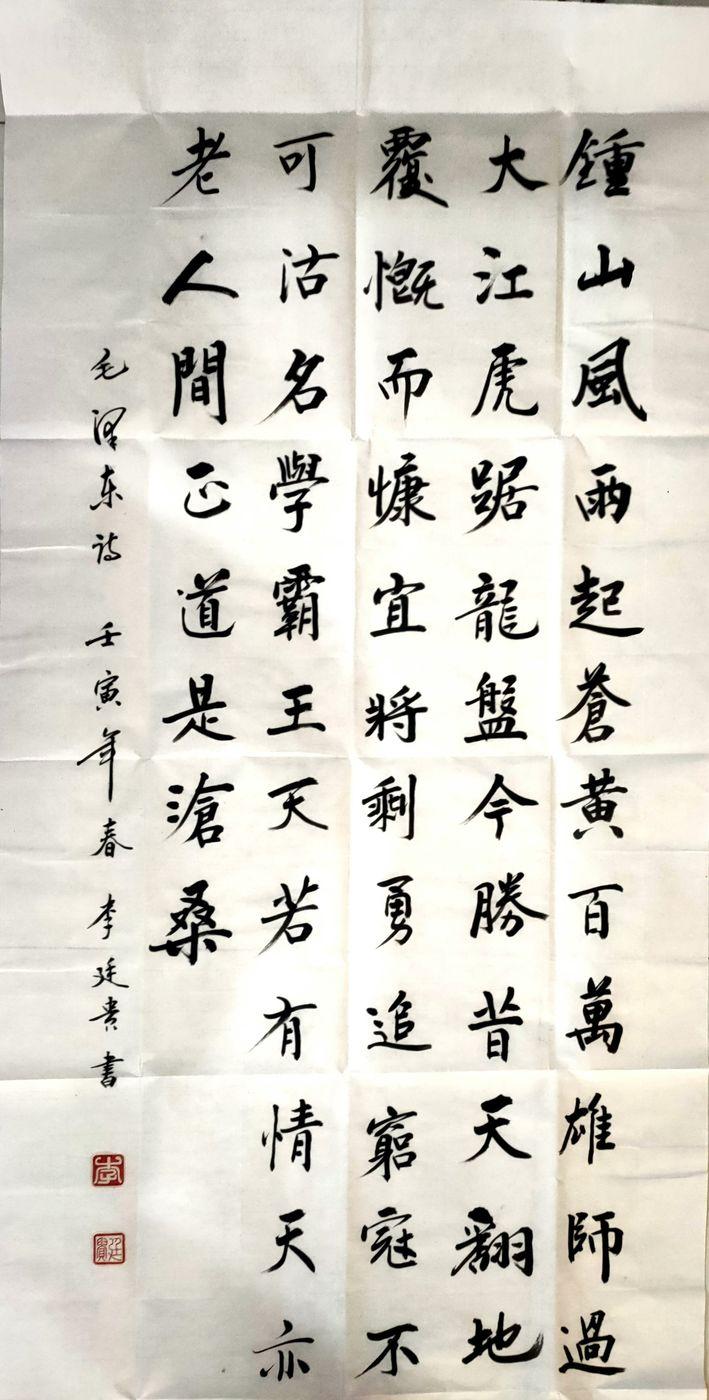 鍾山風雨起蒼黃百萬雄師過
大江虎踞龍盤今勝昔天翻地
覆慨而慷宜將剩勇追窮寇不
可沽名學霸王天若有情天亦
老人間正道是滄桑
毛泽东诗 壬寅年春 李廷贵書
李